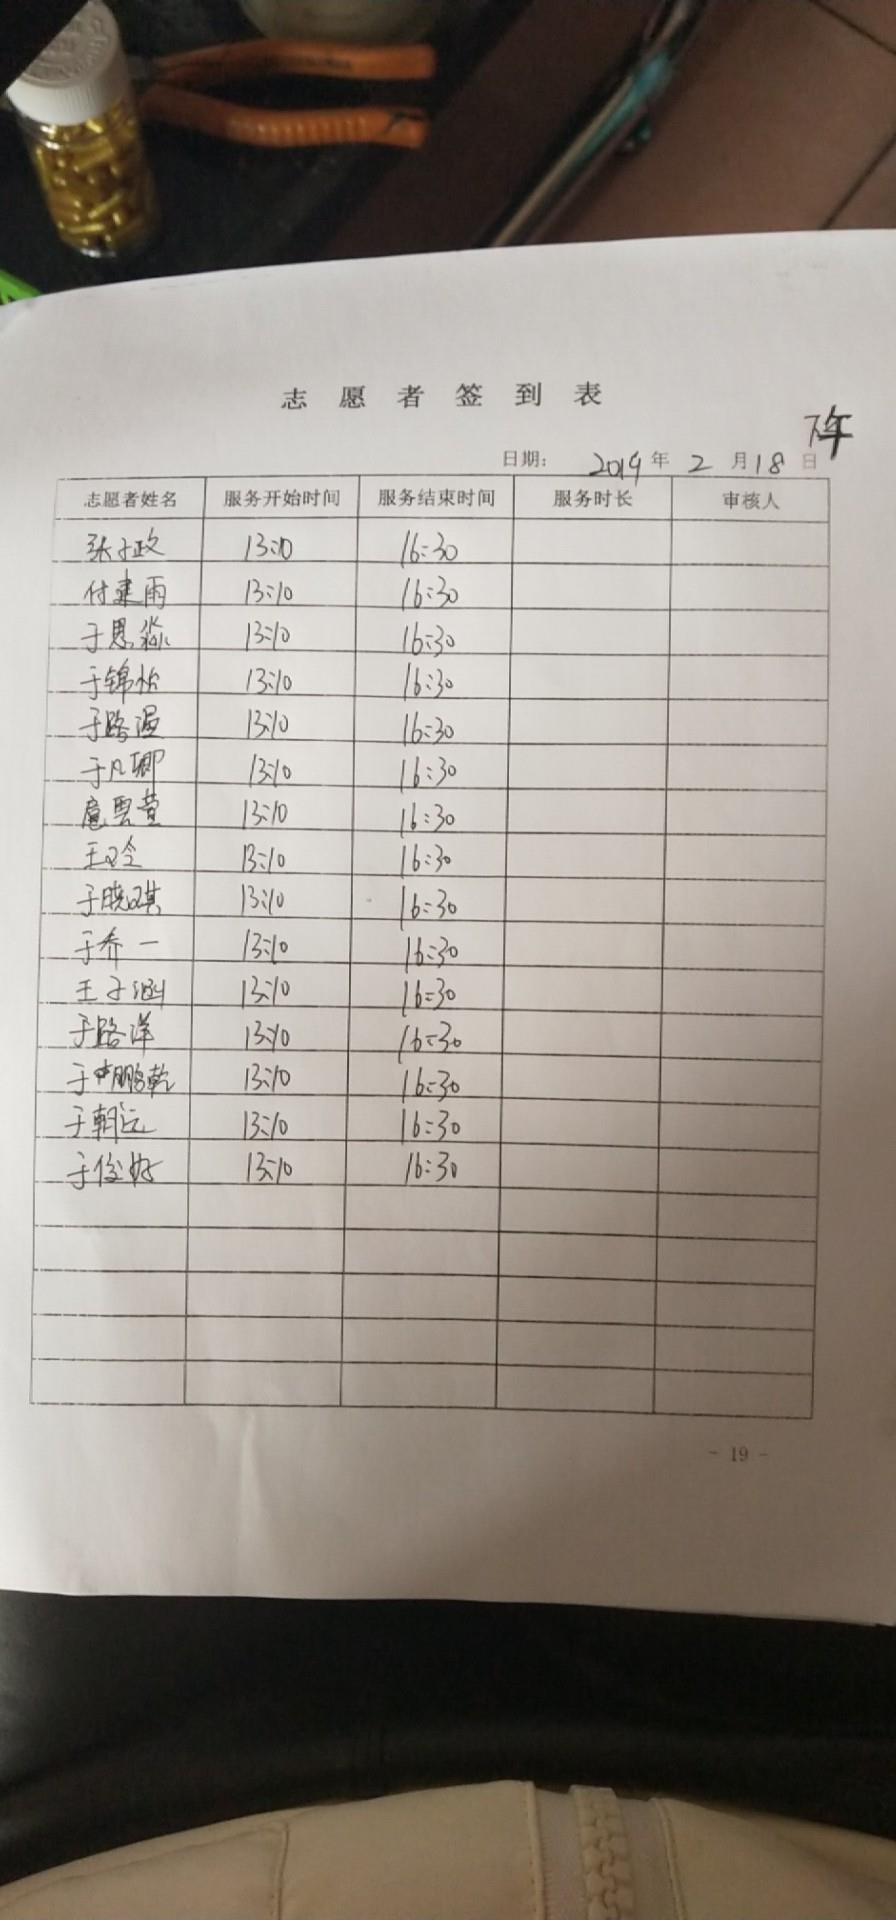 志愿者签到表
下午
日期: 2019年2月18日
志愿者姓名 服务开始时间 服务结束时间 服务时长 审核人
张子政 13:10 16:30
付建雨 13:10 16:30
于思淼 13:10 16:30
于锦怡 13:10 16:30
于路温 13:10 16:30
于凡卿 13:10 16:30
扈云萱 13:10 16:30
王玲 13:10 16:30
于晓琪 13:10 16:30
于乔一 13:10 16:30
王子涵 13:10 16:30
于路洋 13:10 16:30
于鹏乾 13:10 16:30
于朝远 13:10 16:30
于俊好 13:10 16:30
- 19 -